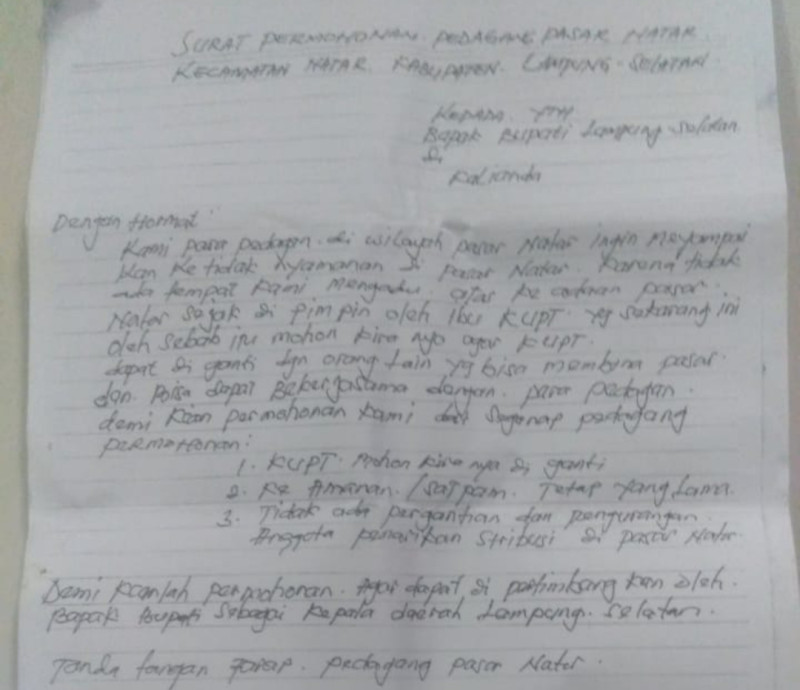 SURAT PERMOHONAN PEDAGANG PASAR NATAR
KECAMATAN NATAR. KABUPATEN. LAMPUNG-SELATAN
KEPADA. YTH
Bapak Bupati Lampung Selatan
di
Kalianda
Dengan Hormat
Kami para pedagan. di wilayah pasar Natar ingin meyampai
kan ke tidak nyamanan di pasar Natar. Karena tidak
ada tempat kami mengadu. atas ke adaan pasar.
Natar sejak di pimpin oleh ibu KUPT. yg sekarang ini
oleh sebab itu mohon kira nya agar KUPT.
dapat di ganti dgn orang lain yg bisa membina pasar.
dan. Bisa dapat Bekerjasama dengan. para pedagan.
demi kian permohonan kami dari segenap pedagang
PERMOHONAN:
1. KUPT. Mohon kira nya di ganti
2. Ke Amanan. /satpam. Tetap yang Lama.
3. Tidak ada pergantian dan pengurangan.
Anggota penarikan stribusi di pasar Natar.
Demi kianlah permohonan. Agar dapat di pertimbang kan oleh.
Bapak Bupati sebagai kepala daerah Lampung. selatan.
Tanda tangan pedagang pasar Natar.